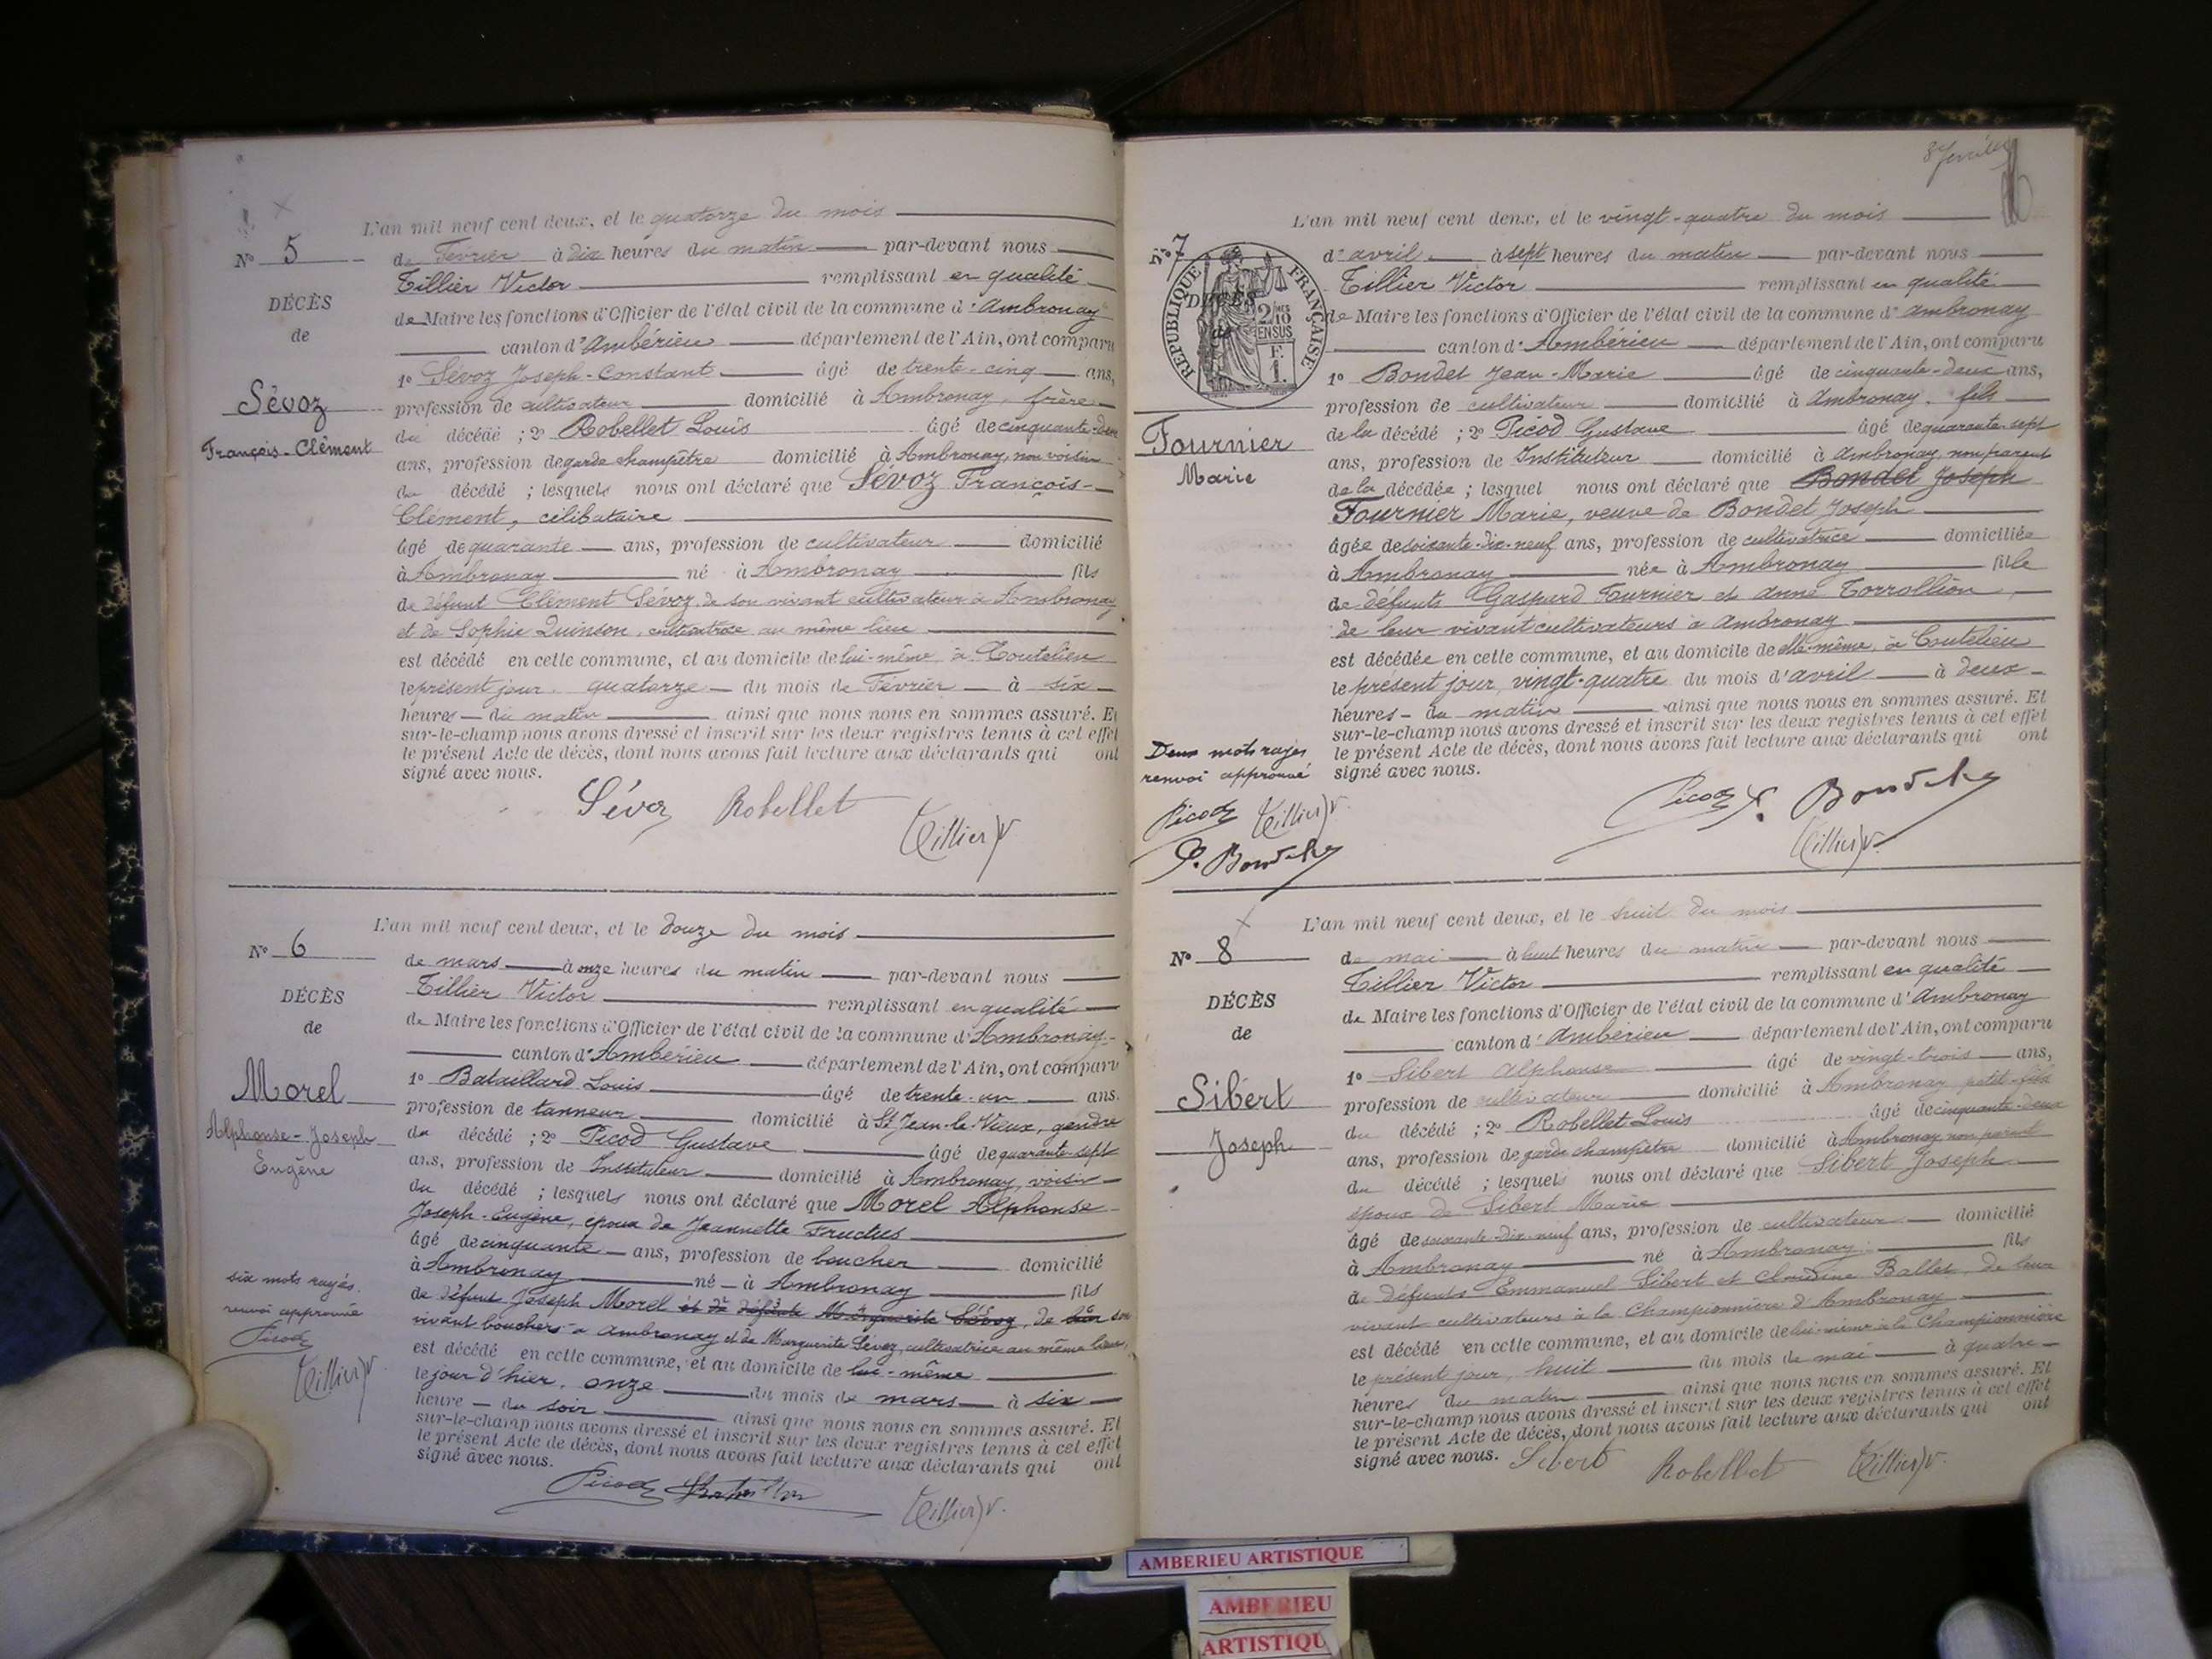 L'an mil neuf cent deux, et le quatorze du mois
N° 5
de Février à dix heures du matin par-devant nous
Tillier Victor remplissant en qualité
DÉCÈS
de Maire les fonctions d'Officier de l'état civil de la commune d'Ambronay
de
canton d'Ambérieu département de l'Ain, ont comparu
1° Sévoz Joseph-Constant âgé de trente-cinq ans,
Sévoz
profession de cultivateur domicilié à Ambronay, frère
François-Clément
du décédé ; 2° Robellet Louis âgé de cinquante-deux
ans, profession de garde champêtre domicilié à Ambronay, non voisin
du décédé ; lesquels nous ont déclaré que Sévoz François-
Clément, célibataire
âgé de quarante ans, profession de cultivateur domicilié
à Ambronay né à Ambronay fils
de défunt Clément Sévoz, de son vivant cultivateur à Ambronay
et de Sophie Quinson, cultivatrice au même lieu
est décédé en cette commune, et au domicile de lui-même à Coutelieu
le présent jour, quatorze du mois de Février à six
heures du matin ainsi que nous nous en sommes assuré. Et
sur-le-champ nous avons dressé et inscrit sur les deux registres tenus à cet effet
le présent Acte de décès, dont nous avons fait lecture aux déclarants qui ont
signé avec nous.
Sévoz Robellet
Tillier V
L'an mil neuf cent deux, et le douze du mois
N° 6
de mars à onze heures du matin par-devant nous
Tillier Victor remplissant en qualité
DÉCÈS
de Maire les fonctions d'Officier de l'état civil de la commune d'Ambronay
de
canton d'Ambérieu département de l'Ain, ont comparu
1° Bataillard Louis âgé de trente-un ans.
Morel
profession de tanneur domicilié à St Jean-le-Vieux, gendre
Alphonse-Joseph
Eugène
du décédé ; 2° Picod Gustave âgé de quarante-sept
ans, profession de Instituteur domicilié à Ambronay, voisin
du décédé ; lesquels nous ont déclaré que Morel Alphonse
Joseph-Eugène, époux de Jeannette Fructus
âgé de cinquante ans, profession de boucher domicilié
à Ambronay né à Ambronay fils
six mots rayés.
renvoi approuvé
Picod
Tillier V
de défunt Joseph Morel et de défunte Marguerite Sévoz, de son
vivant boucher à Ambronay et de Marguerite Sévoz, cultivatrice au même lieu,
est décédé en cette commune, et au domicile de lui-même
le jour d'hier, onze du mois de mars à six
heure du soir ainsi que nous nous en sommes assuré. Et
sur-le-champ nous avons dressé et inscrit sur les deux registres tenus à cet effet
le présent Acte de décès, dont nous avons fait lecture aux déclarants qui ont
signé avec nous.
Picod
Tillier V.
L'an mil neuf cent deux, et le vingt-quatre du mois
N° 7
d'avril à sept heures du matin par-devant nous
Tillier Victor remplissant en qualité
DÉCÈS
de
RÉPUBLIQUE FRANÇAISE
2/10 EN SUS
F.
1.
de Maire les fonctions d'Officier de l'état civil de la commune d'Ambronay
canton d'Ambérieu département de l'Ain, ont comparu
1° Bondet Jean-Marie âgé de cinquante-deux ans,
profession de cultivateur domicilié à Ambronay, fils
Fournier
Marie
de la décédé ; 2° Picod Gustave âgé de quarante-sept
ans, profession de Instituteur domicilié à Ambronay, non parent
de la décédée ; lesquel nous ont déclaré que Bondet Joseph
Fournier Marie, veuve de Bondet Joseph
âgée de soixante-dix-neuf ans, profession de cultivatrice domiciliée
à Ambronay née à Ambronay fille
de défunts Gaspard Fournier et Anne Torrollion
de leur vivant cultivateurs à Ambronay
est décédée en cette commune, et au domicile de elle-même, à Coutelieu
le présent jour, vingt-quatre du mois d'avril à deux
heures du matin ainsi que nous nous en sommes assuré. Et
sur-le-champ nous avons dressé et inscrit sur les deux registres tenus à cet effet
le présent Acte de décès, dont nous avons fait lecture aux déclarants qui ont
signé avec nous.
Deux mots rayés
renvoi approuvé
Picod Tillier V.
Picod
Tillier V.
L'an mil neuf cent deux, et le huit du mois
N° 8
de mai à huit heures du matin par-devant nous
Tillier Victor remplissant en qualité
DÉCÈS
de Maire les fonctions d'Officier de l'état civil de la commune d'Ambronay
de
canton d'Ambérieu département de l'Ain, ont comparu
1° Sibert Alphonse âgé de vingt-trois ans,
Sibert
Joseph
profession de cultivateur domicilié à Ambronay petit-fils
du décédé ; 2° Robellet Louis âgé de cinquante-deux
ans, profession de garde champêtre domicilié à Ambronay non parent
du décédé ; lesquels nous ont déclaré que Sibert Joseph
époux de Sibert Marie
âgé de soixante-dix-neuf ans, profession de cultivateur domicilié
à Ambronay né à Ambronay fils
de défunts Emmanuel Sibert et Claudine Ballet, de leur
vivant cultivateurs à la Championnière d'Ambronay
est décédé en cette commune, et au domicile de lui-même à la Championnière
le présent jour, huit du mois de mai à quatre
heures du matin ainsi que nous nous en sommes assuré. Et
sur-le-champ nous avons dressé et inscrit sur les deux registres tenus à cet effet
le présent Acte de décès, dont nous avons fait lecture aux déclarants qui ont
signé avec nous. Sibert Robellet Tillier V.
AMBERIEU ARTISTIQUE
AMBERIEU
ARTISTIQU